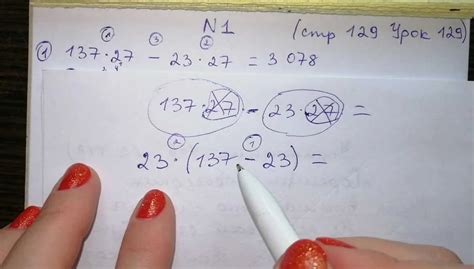 N1 (стр 129 Урок 129)
① 137·27 - 23·27 = 3 078
137·27 - 23·27 =
23·(137 - 23) =